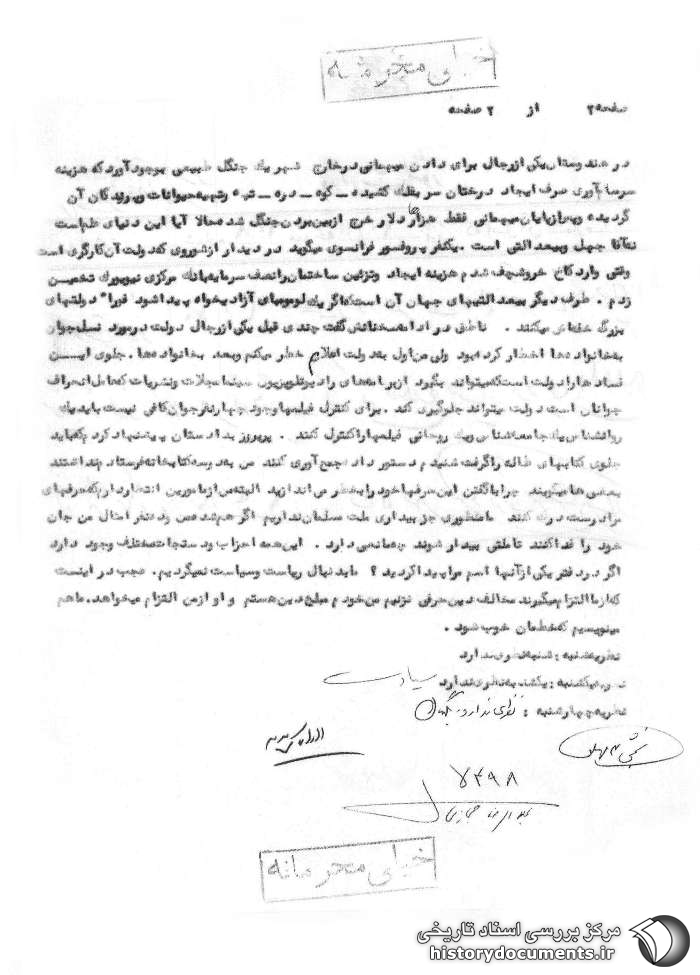 خیلی محرمانه
صفحه ۲ از ۲ صفحه
در هندوستان یکی از رجال برای دادن میهمانی در خارج شهر یک جنگل طبیعی بوجود آورد که هزینه
سرسام‌آوری صرف ایجاد درختان سر بفلک کشیده ــ کوه ــ دره ــ تپه و تهیه حیوانات و پرندگان آن
گردیده و پس از پایان میهمانی فقط هزار دلار خرج از بین بردن جنگل شد حالا آیا این دنیای علم است
نه آقا جهل و بیعدالتی است . یکنفر پروفسور فرانسوی میگوید در دیدار از شوروی که دولت آن کارگری است
وقتی وارد کاخ خروشچف شدم هزینه ایجاد وتزئین ساختمان را نصف سرمایه بانک مرکزی نیویورک تخمین
زدم . طرف دیگر بیعدالتیهای جهان آن است که اگر یک لومومبای آزادیخواه پیدا شود فورا" دولتهای
بزرگ خفه‌اش میکنند . ناطق در ادامه سخنانش گفت چندی قبل یکی از رجال دولت در مورد نسل جوان
به خانواده‌ها اخطار کرده بود ولی من اول به دولت اعلام خطر میکنم وبعد بخانواده‌ها . جلوی ایــن
فسادها را دولت است که میتواند بگیرد از برنامه‌های رادیو تلویزیون سینما مجلات ونشریات که عامل انحراف
جوانان است دولت میتواند جلوگیری کند . برای کنترل فیلمها وجود چهار نفر جوان کافی نیست باید یک
روانشناس یک جامعه‌شناس و یک روحانی فیلمها را کنترل کنند . پریروز به دادستان پیشنهاد کردم که باید
جلوی کتابهای ضاله را گرفت شنیدم دستور داده جمع‌آوری کنند من به دو سه کتابخانه فرستادم نداشتند
بعضی‌ها میگویند چرا با گفتن این حرفها خود را بخطر می‌اندازید البته من از مامورین انتظار دارم که حرفهای
مرا درست درک کنند ما منظوری جز بیداری ملت مسلمان نداریم اگر هم شده من و ده نفر امثال من جان
خود را فدا کنند تا ملتی بیدار شوند چه مانعی دارد . این همه احزاب و دستجات مختلف وجود دارد
اگر در دفتر یکی از آنها اسم مرا پیدا کردید ؟ ما بدنبال ریاست وسیاست نمیگردیم . عجب در اینست
که از ما التزام میگیرند مخالف دین حرفی نزنیم من خودم مبلغ دین هستم و او از من التزام میخواهد . ماهم
مینویسیم که خطمان خوب شود .
نظریه شنبه : شنبه نظری ندارد
نظریه یکشنبه : یکشنبه نظری ندارد
نظریه چهارشنبه : نظری ندارد
خیلی محرمانه
مرکز بررسی اسناد تاریخی
historydocuments.ir